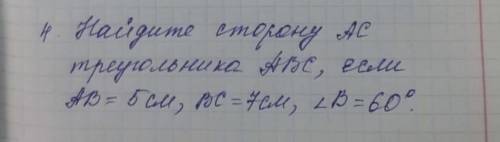 4. Найдите сторону АС
треугольника АВС, если
АВ = 5 см, ВС = 7 см, ∠В = 60°.